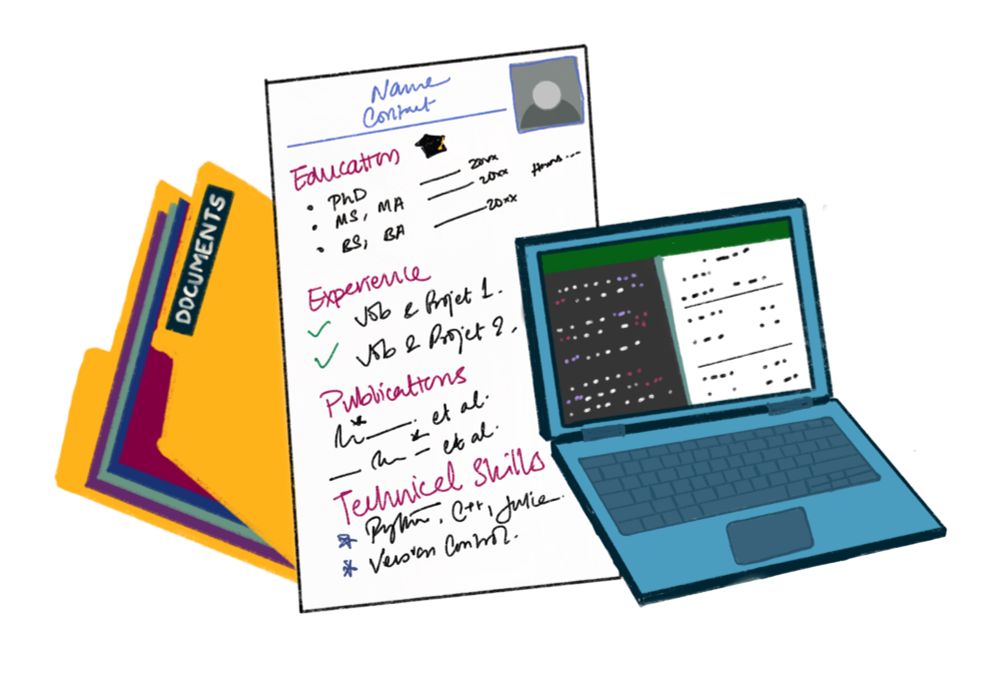 DOCUMENTS
Name
Contact
Education
• PhD 20xx
• MS, MA 20xx
• BS, BA 20xx
Experience
✓ Job & Projet 1.
✓ Job & Projet 2.
Publications
* et al.
* et al.
Technical Skills
* Python, C++, Julia
* Version Control.